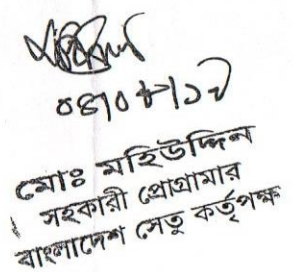 মোঃ মহিউদ্দিন
সহকারী প্রোগ্রামার
বাংলাদেশ সেতু কর্তৃপক্ষ